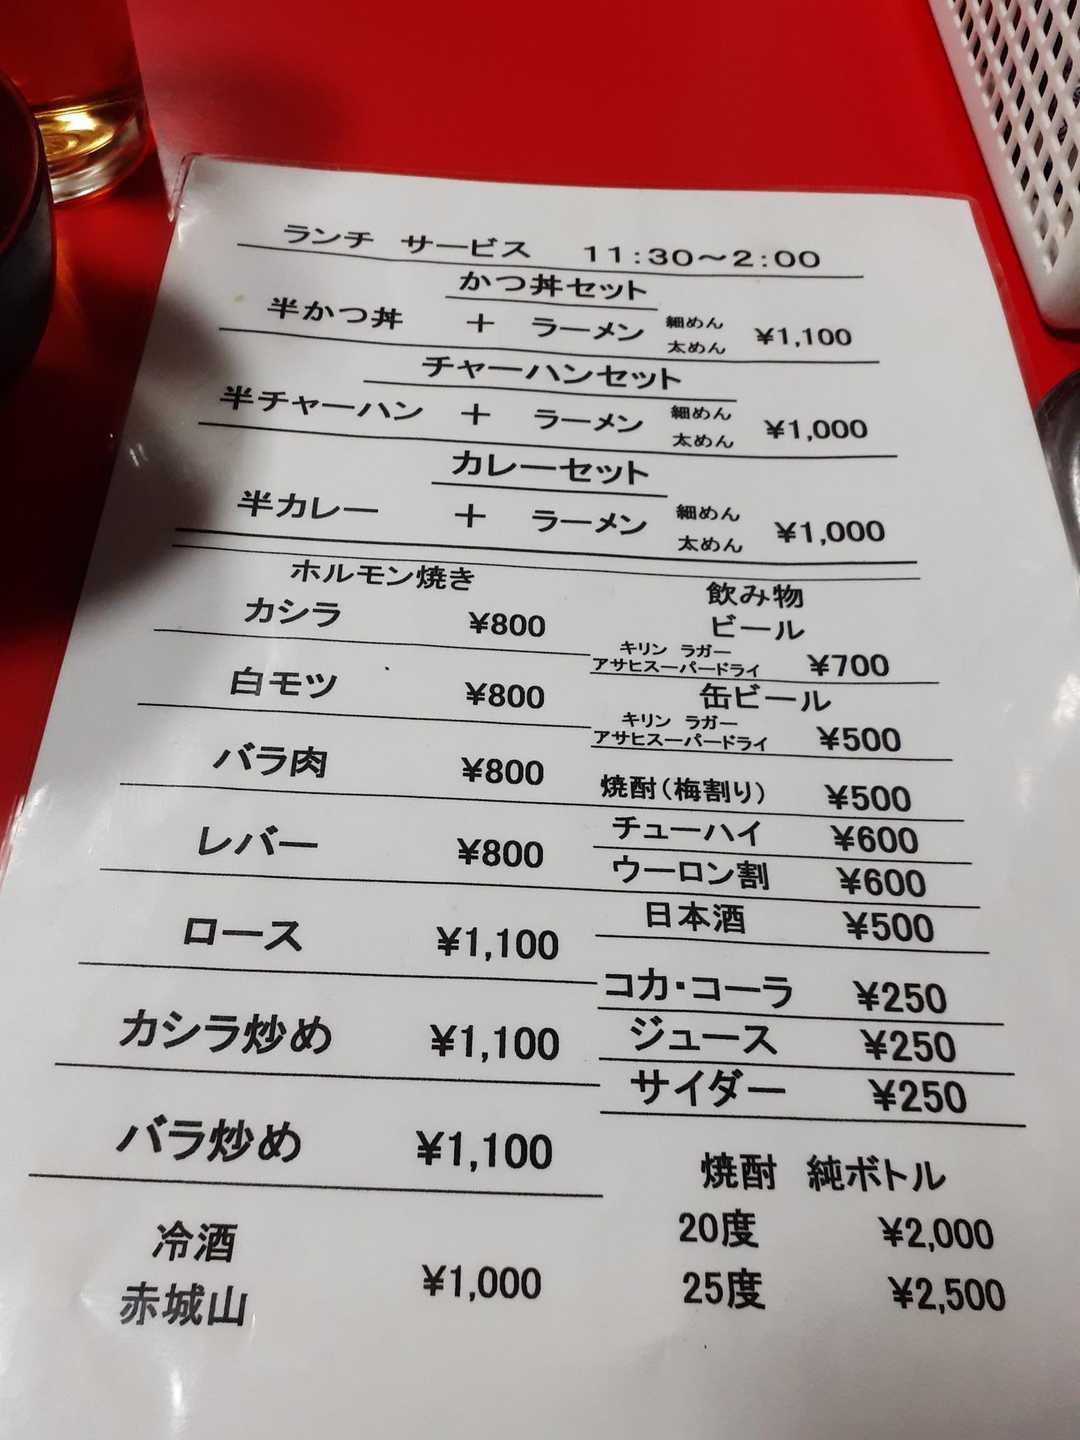 ランチ サービス 11:30～2:00
かつ丼セット
半かつ丼 ＋ ラーメン 細めん 太めん ¥1,100
チャーハンセット
半チャーハン ＋ ラーメン 細めん 太めん ¥1,000
カレーセット
半カレー ＋ ラーメン 細めん 太めん ¥1,000
ホルモン焼き
カシラ ¥800
白モツ ¥800
バラ肉 ¥800
レバー ¥800
ロース ¥1,100
カシラ炒め ¥1,100
バラ炒め ¥1,100
冷酒
赤城山 ¥1,000
飲み物
ビール
キリン ラガー
アサヒスーパードライ ¥700
缶ビール
キリン ラガー
アサヒスーパードライ ¥500
焼酎(梅割り) ¥500
チューハイ ¥600
ウーロン割 ¥600
日本酒 ¥500
コカ・コーラ ¥250
ジュース ¥250
サイダー ¥250
焼酎 純ボトル
20度 ¥2,000
25度 ¥2,500